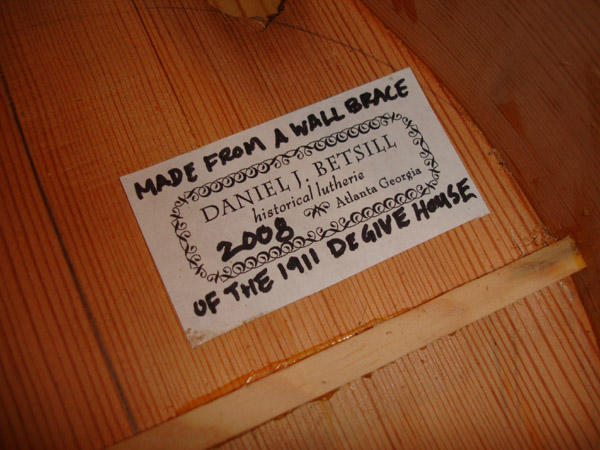 MADE FROM A WALL BRACE
DANIEL J. BETSILL
historical lutherie
2008 Atlanta Georgia
OF THE 1911 DEGIVE HOUSE